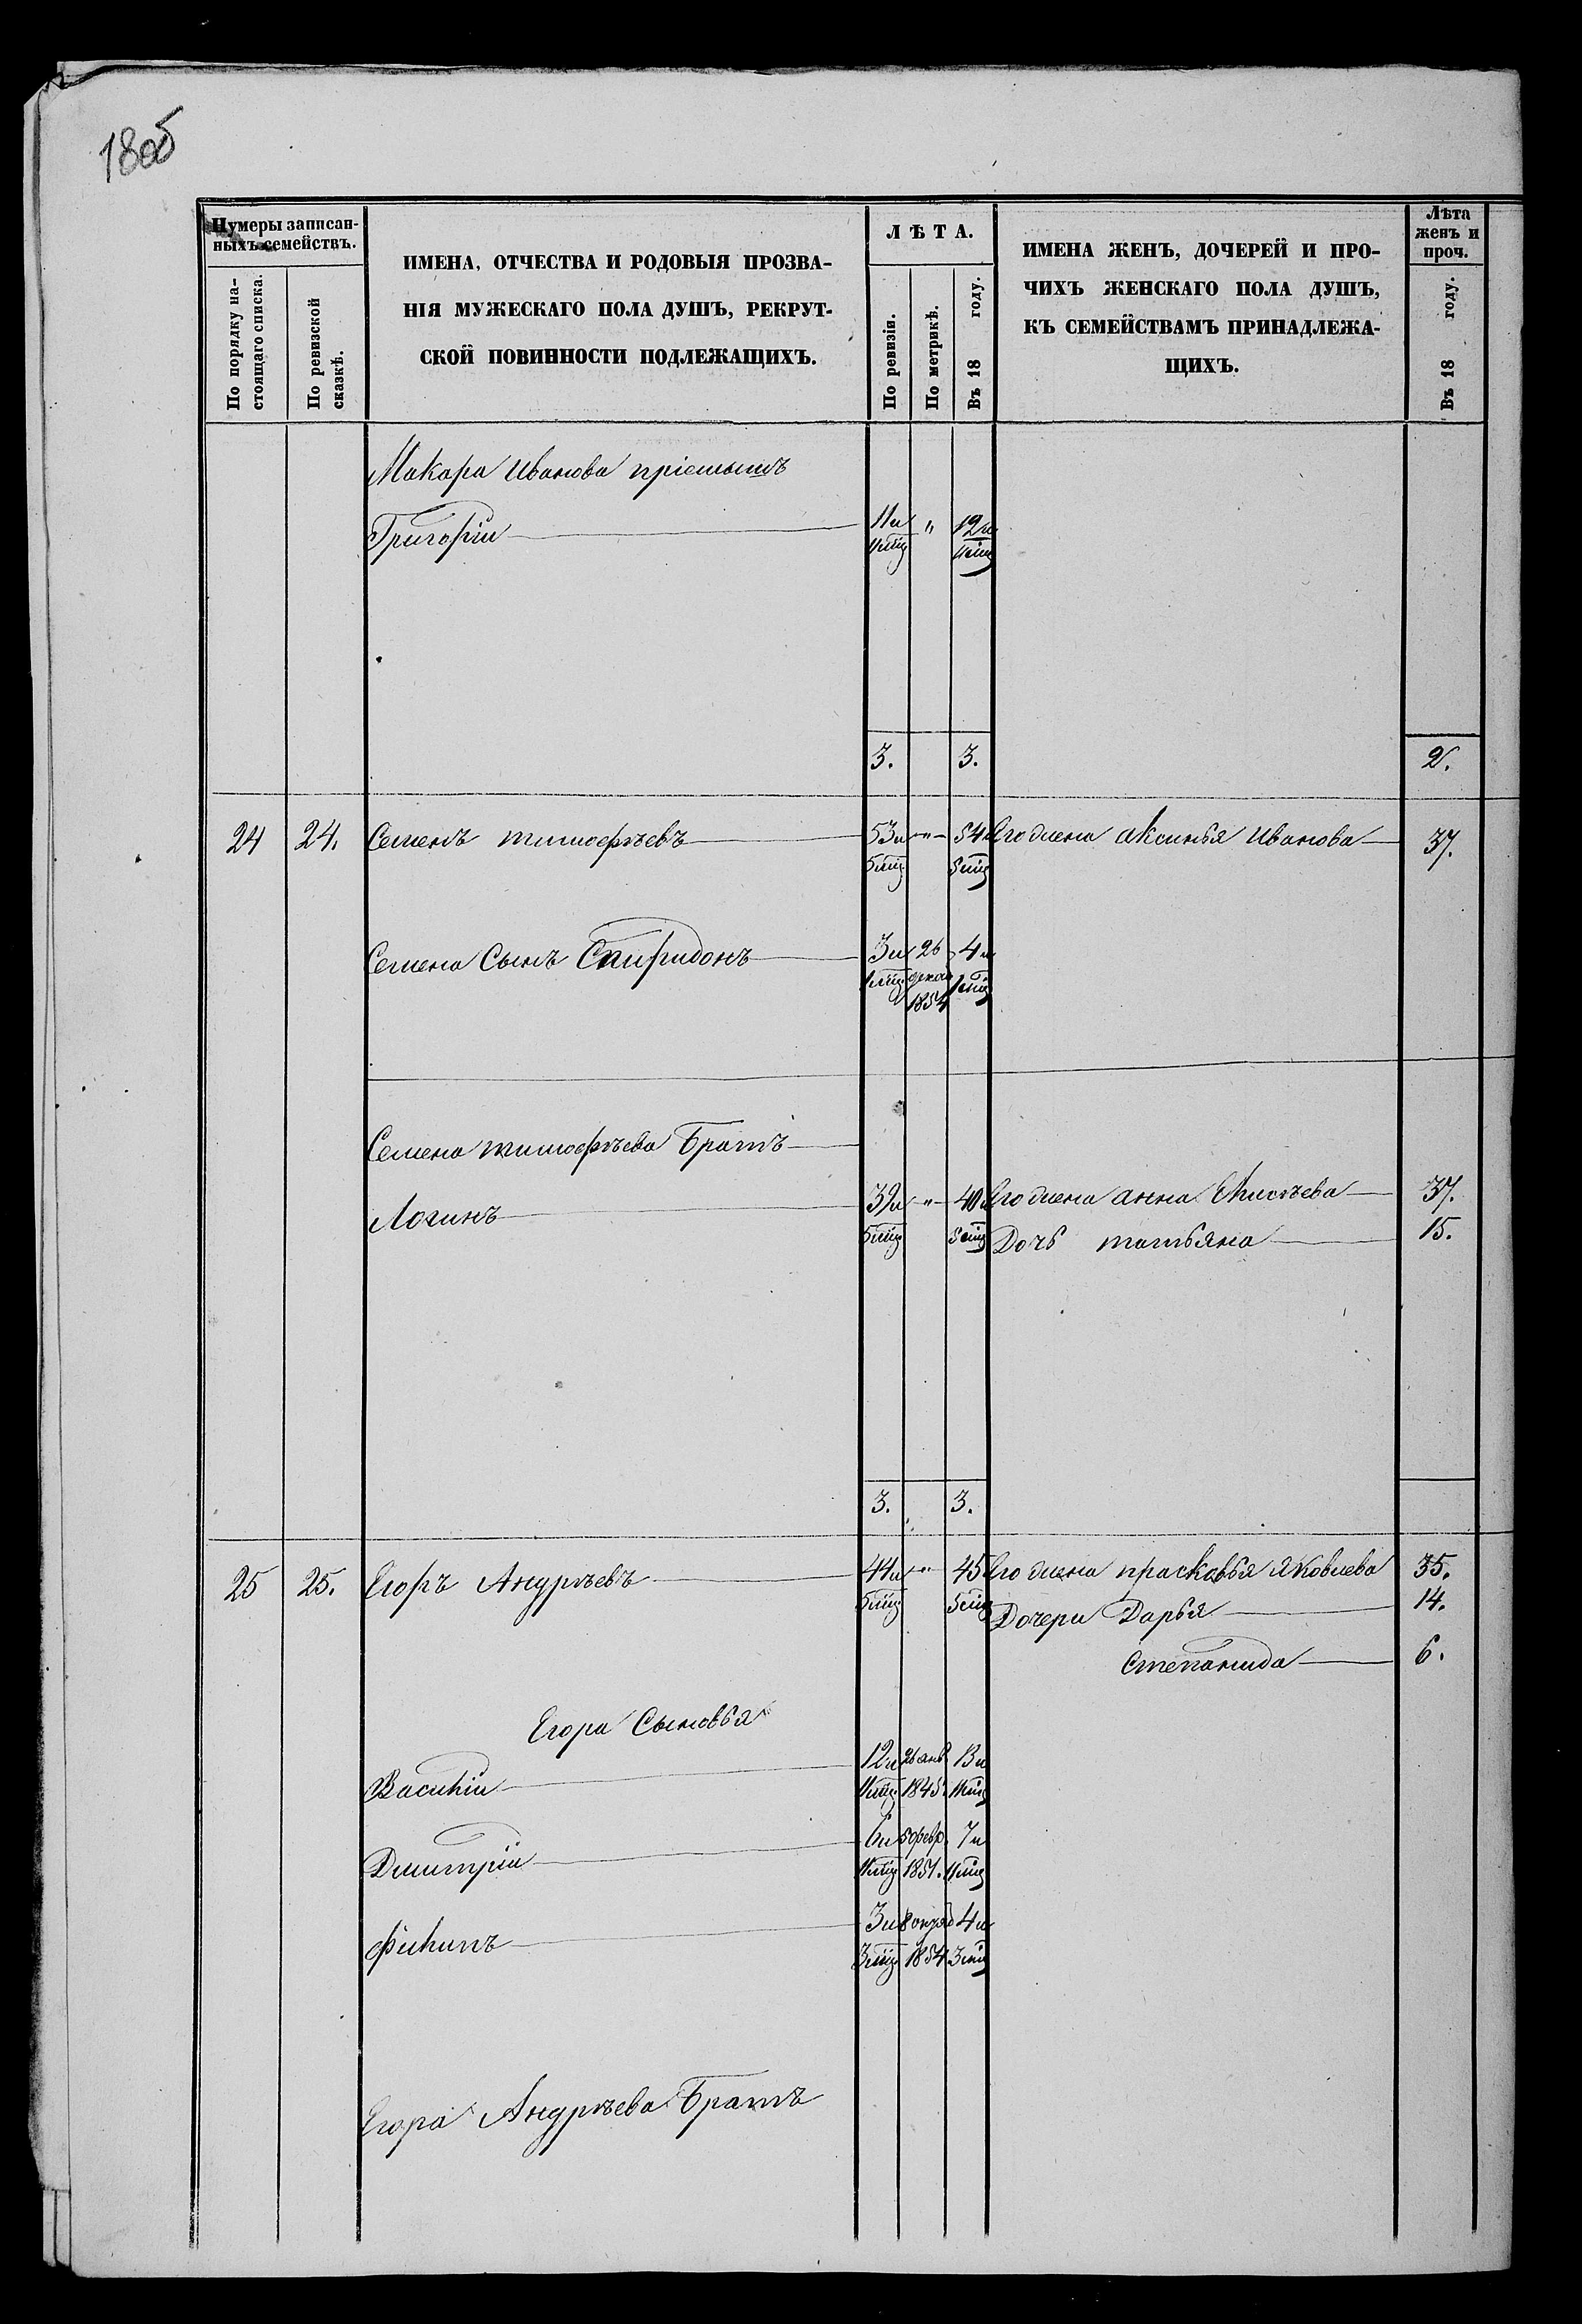 180б
Нумеры записан-
ныхъ семействъ.
По порядку на-
стоящаго списка.
По ревизской
сказкѣ.
ИМЕНА, ОТЧЕСТВА И РОДОВЫЯ ПРОЗВА-
НІЯ МУЖЕСКАГО ПОЛА ДУШЪ, РЕКРУТ-
СКОЙ ПОВИННОСТИ ПОДЛЕЖАЩИХЪ.
ЛѢТА.
По ревизіи.
По метрикѣ.
Въ 18 году.
ИМЕНА ЖЕНЪ, ДОЧЕРЕЙ И ПРО-
ЧИХЪ ЖЕНСКАГО ПОЛА ДУШЪ,
КЪ СЕМЕЙСТВАМЪ ПРИНАДЛЕЖА-
ЩИХЪ.
Лѣта
женъ и
проч.
Въ 18 году.
Макара Иванова пріемышъ
Григорій 11и " 12и
11мц 11мц
3. 3. 2.
24 24. Семенъ тимофѣевъ 53и " 54 Его жена аксинья Иванова 37.
5мц 5мц
Семена Сынъ Спиридонъ 3и 26 4и
1мц декаб 1мц
1854
Семена тимофѣева Братъ
Логинъ 39и " 40и Его жена анна Елисѣева 37.
5мц 5мц Дочь татьяна 15.
3. 3.
25 25. Егоръ Андрѣевъ 44и " 45 Его жена прасковья Яковлева 35.
5мц 5мц Дочери Дарья 14.
степанида 6.
Егора Сыновья
Василій 12и 26 янв 13и
11мц 1845. 11мц
Дмитрій 6и 5 февр. 7и
11мц 1851. 11мц
филипъ 3и 4и
3мц 1854 3мц
Егора Андрѣева Братъ